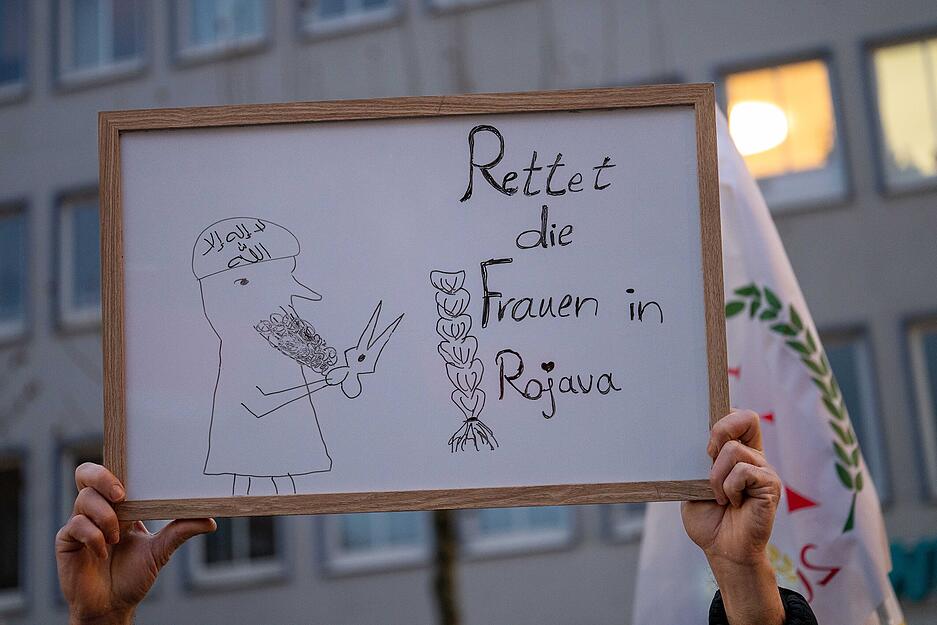 لا إله إلا
الله
Rettet
die
Frauen in
Rojava